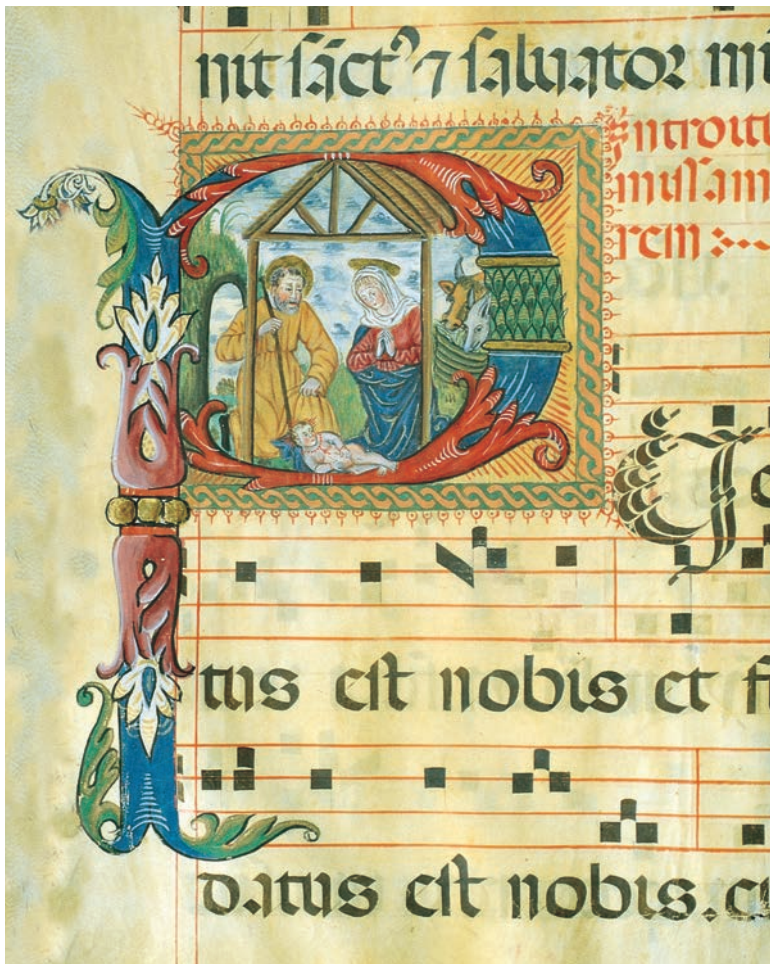 nit sāct⁹ ⁊ saluator mi
Introitu
missam
rem
P
tus est nobis et fi
datus est nobis. cu